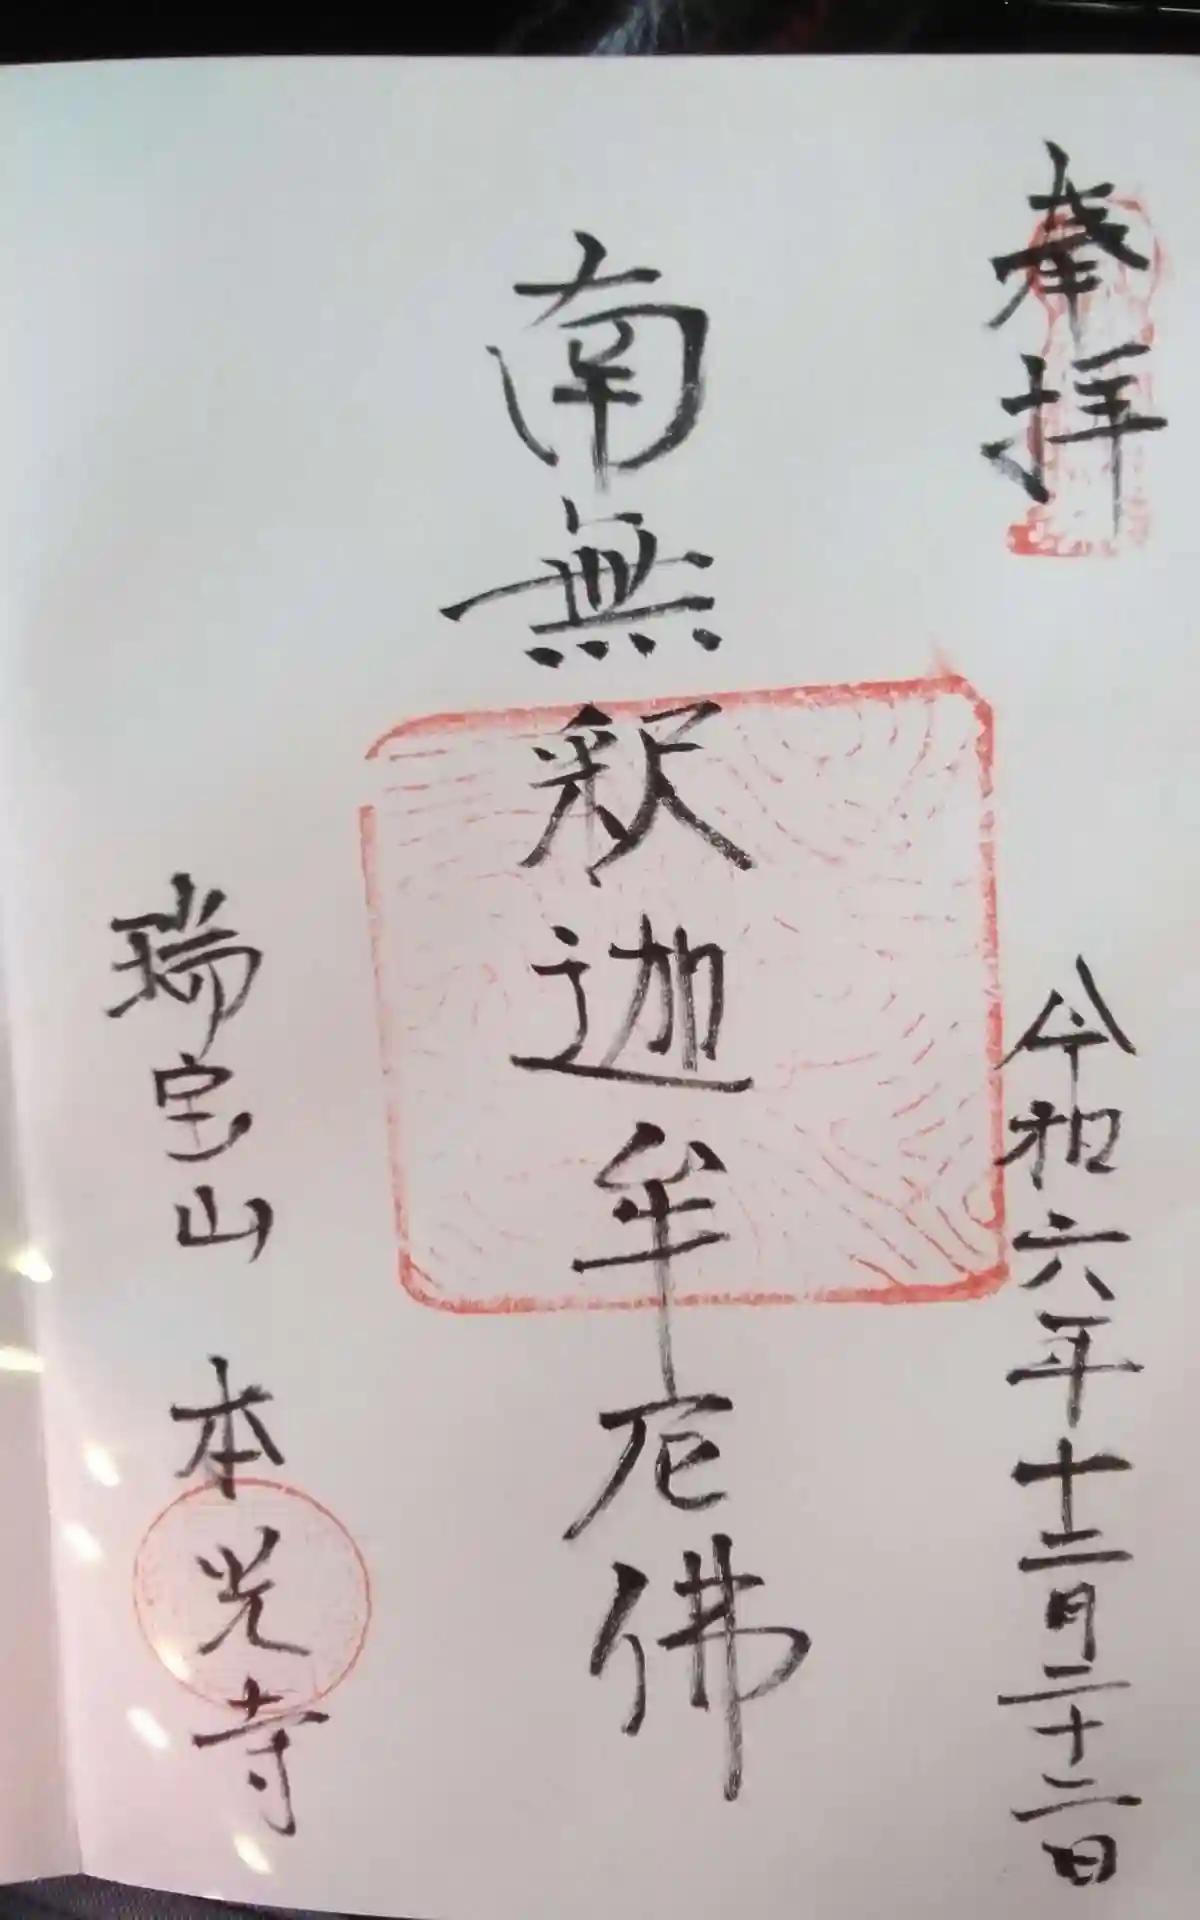 奉拝
令和六年十二月二十二日
南無釈迦牟尼佛
瑞宝山 本光寺